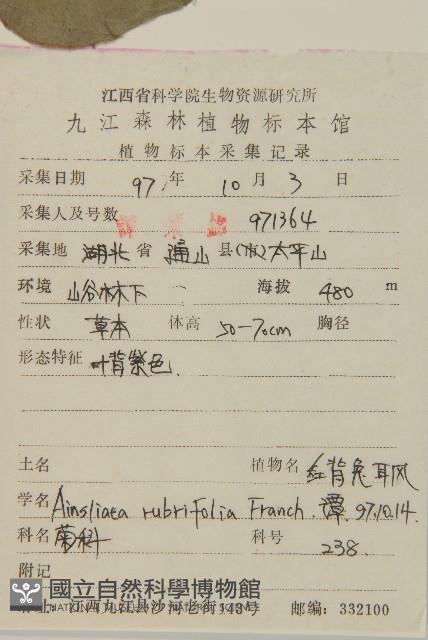 江西省科学院生物资源研究所
九江森林植物标本馆
植物标本采集记录
采集日期 97 年 10 月 3 日
采集人及号数 971364
采集地 湖北 省 通山 县(市) 太平山
环境 山谷林下 海拔 480 m
性状 草本 体高 50-70cm 胸径
形态特征 叶背紫色.
土名 植物名 红背兔耳风
学名 Ainsliaea rubrifolia Franch. 谭. 97.10.14.
科名 菊科 科号 238.
附记
國立自然科學博物館
NATIONAL MUSEUM OF NATURAL SCIENCE
江西九江县沙河老街143号 邮编: 332100